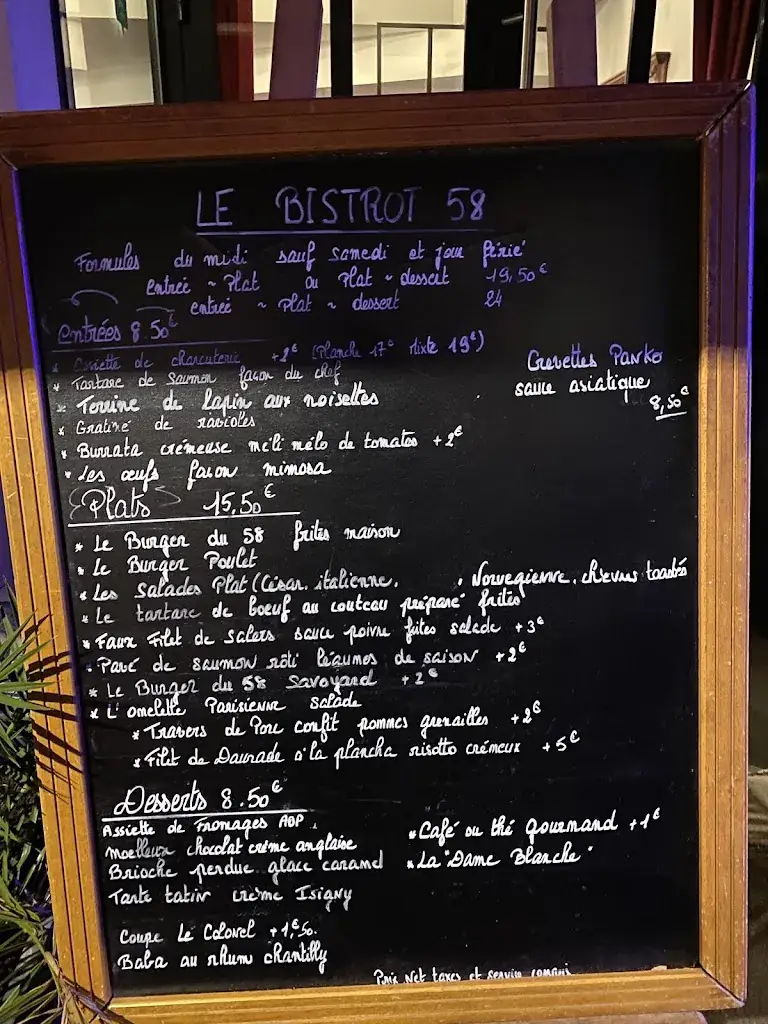 LE BISTROT 58
Formules du midi sauf samedi et jour férié
entrée ~ Plat ou Plat ~ dessert 19,50€
entrée ~ Plat ~ dessert 24
Entrées 8.50€
* Assiette de charcuterie +2€ (Planche 17€ Mixte 19€)
* Tartare de Saumon façon du chef
* Terrine de lapin aux noisettes
* Gratiné de ravioles
* Burrata crémeuse méli mélo de tomates +2€
* Les œufs façon mimosa
Crevettes Panko
sauce asiatique
8,50€
Plats 15.50€
* Le Burger du 58 frites maison
* Le Burger Poulet
* Les Salades Plat (César, italienne, . Norvegienne, chèvres toastés
* Le tartare de boeuf au couteau préparé frites
* Faux Filet de Salers sauce poivre frites salade +3€
* Pavé de saumon rôti légumes de saison +2€
* Le Burger du 58 Savoyard +2€
* L'omelette Parisienne salade
* Travers de Porc confit pommes grenailles +2€
* Filet de Daurade à la plancha risotto crémeux +5€
Desserts 8.50€
Assiette de Fromages AOP
Moelleux chocolat crème anglaise
Brioche perdue glace caramel
Tarte tatin crème Isigny
Coupe Le Colonel +1,€50.
Baba au rhum chantilly
* Café ou thé gourmand +1€
* La "Dame Blanche"
Prix Net taxes et service compris